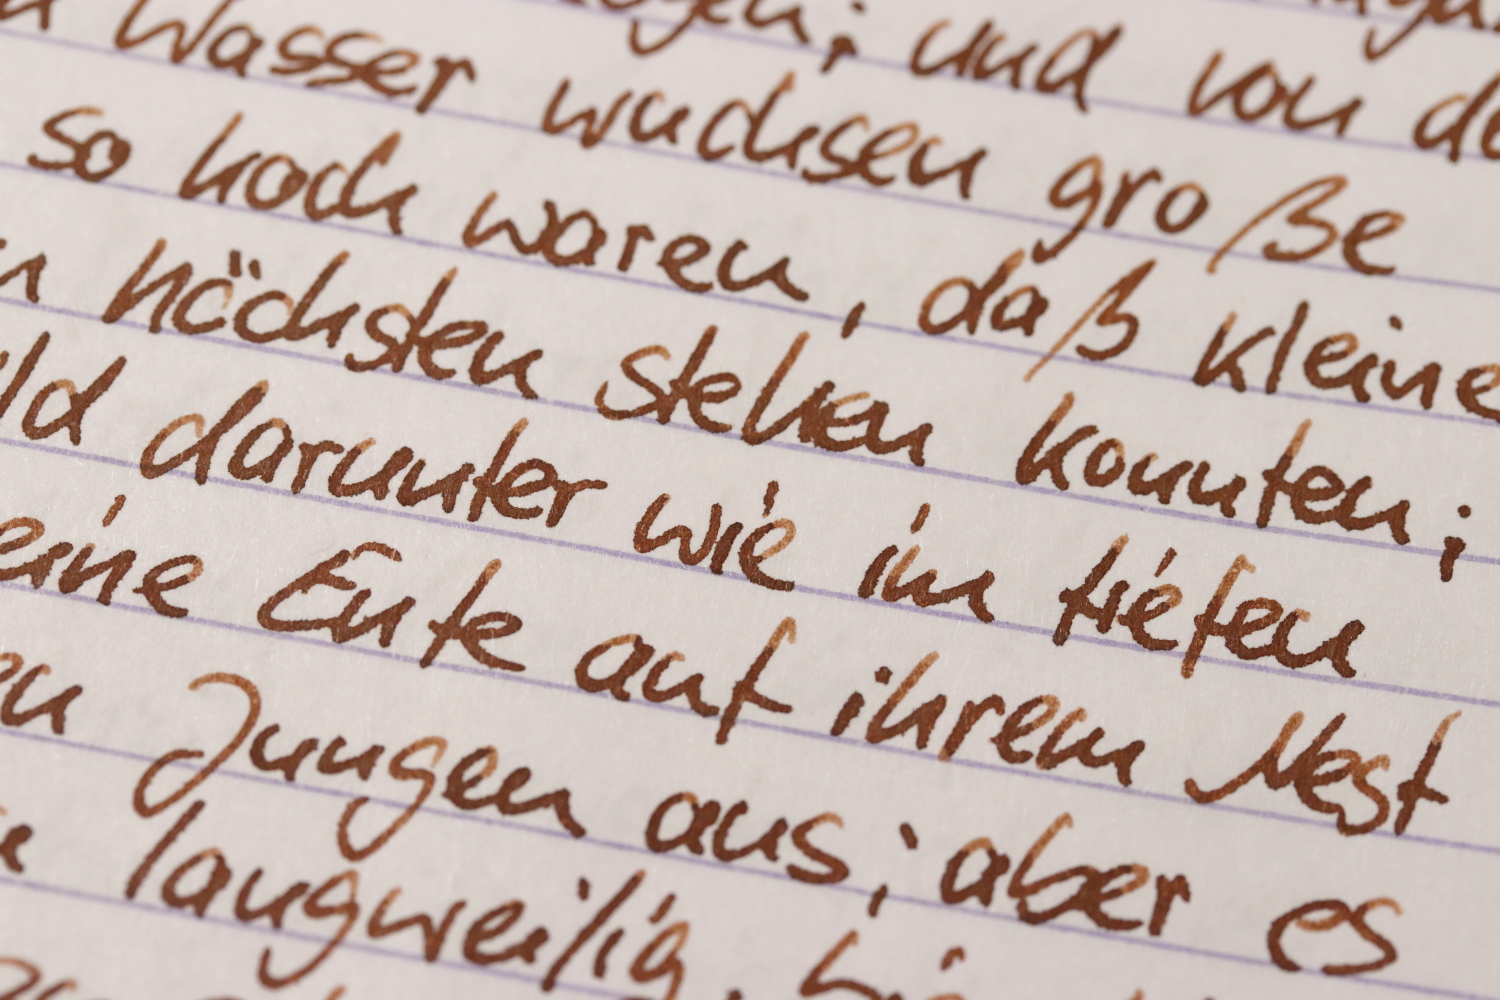 und von
Wasser wuchsen große
so hoch waren, daß kleine
höchsten stehen konnten;
darunter wie im tiefen
eine Ente auf ihrem Nest
Jungen aus; aber es
langweilig,